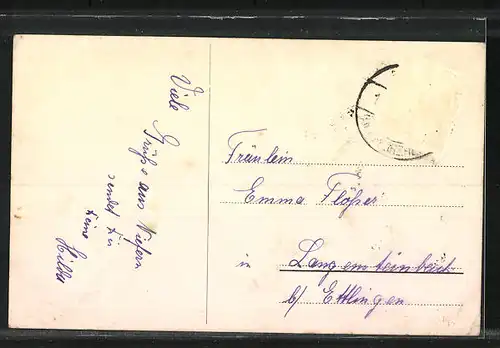 Viele
Grüße aus Niefern
sendet Dir
Deine
Hilde
Fräulein
Emma Flößer
in
Langensteinbach
b/ Ettlingen